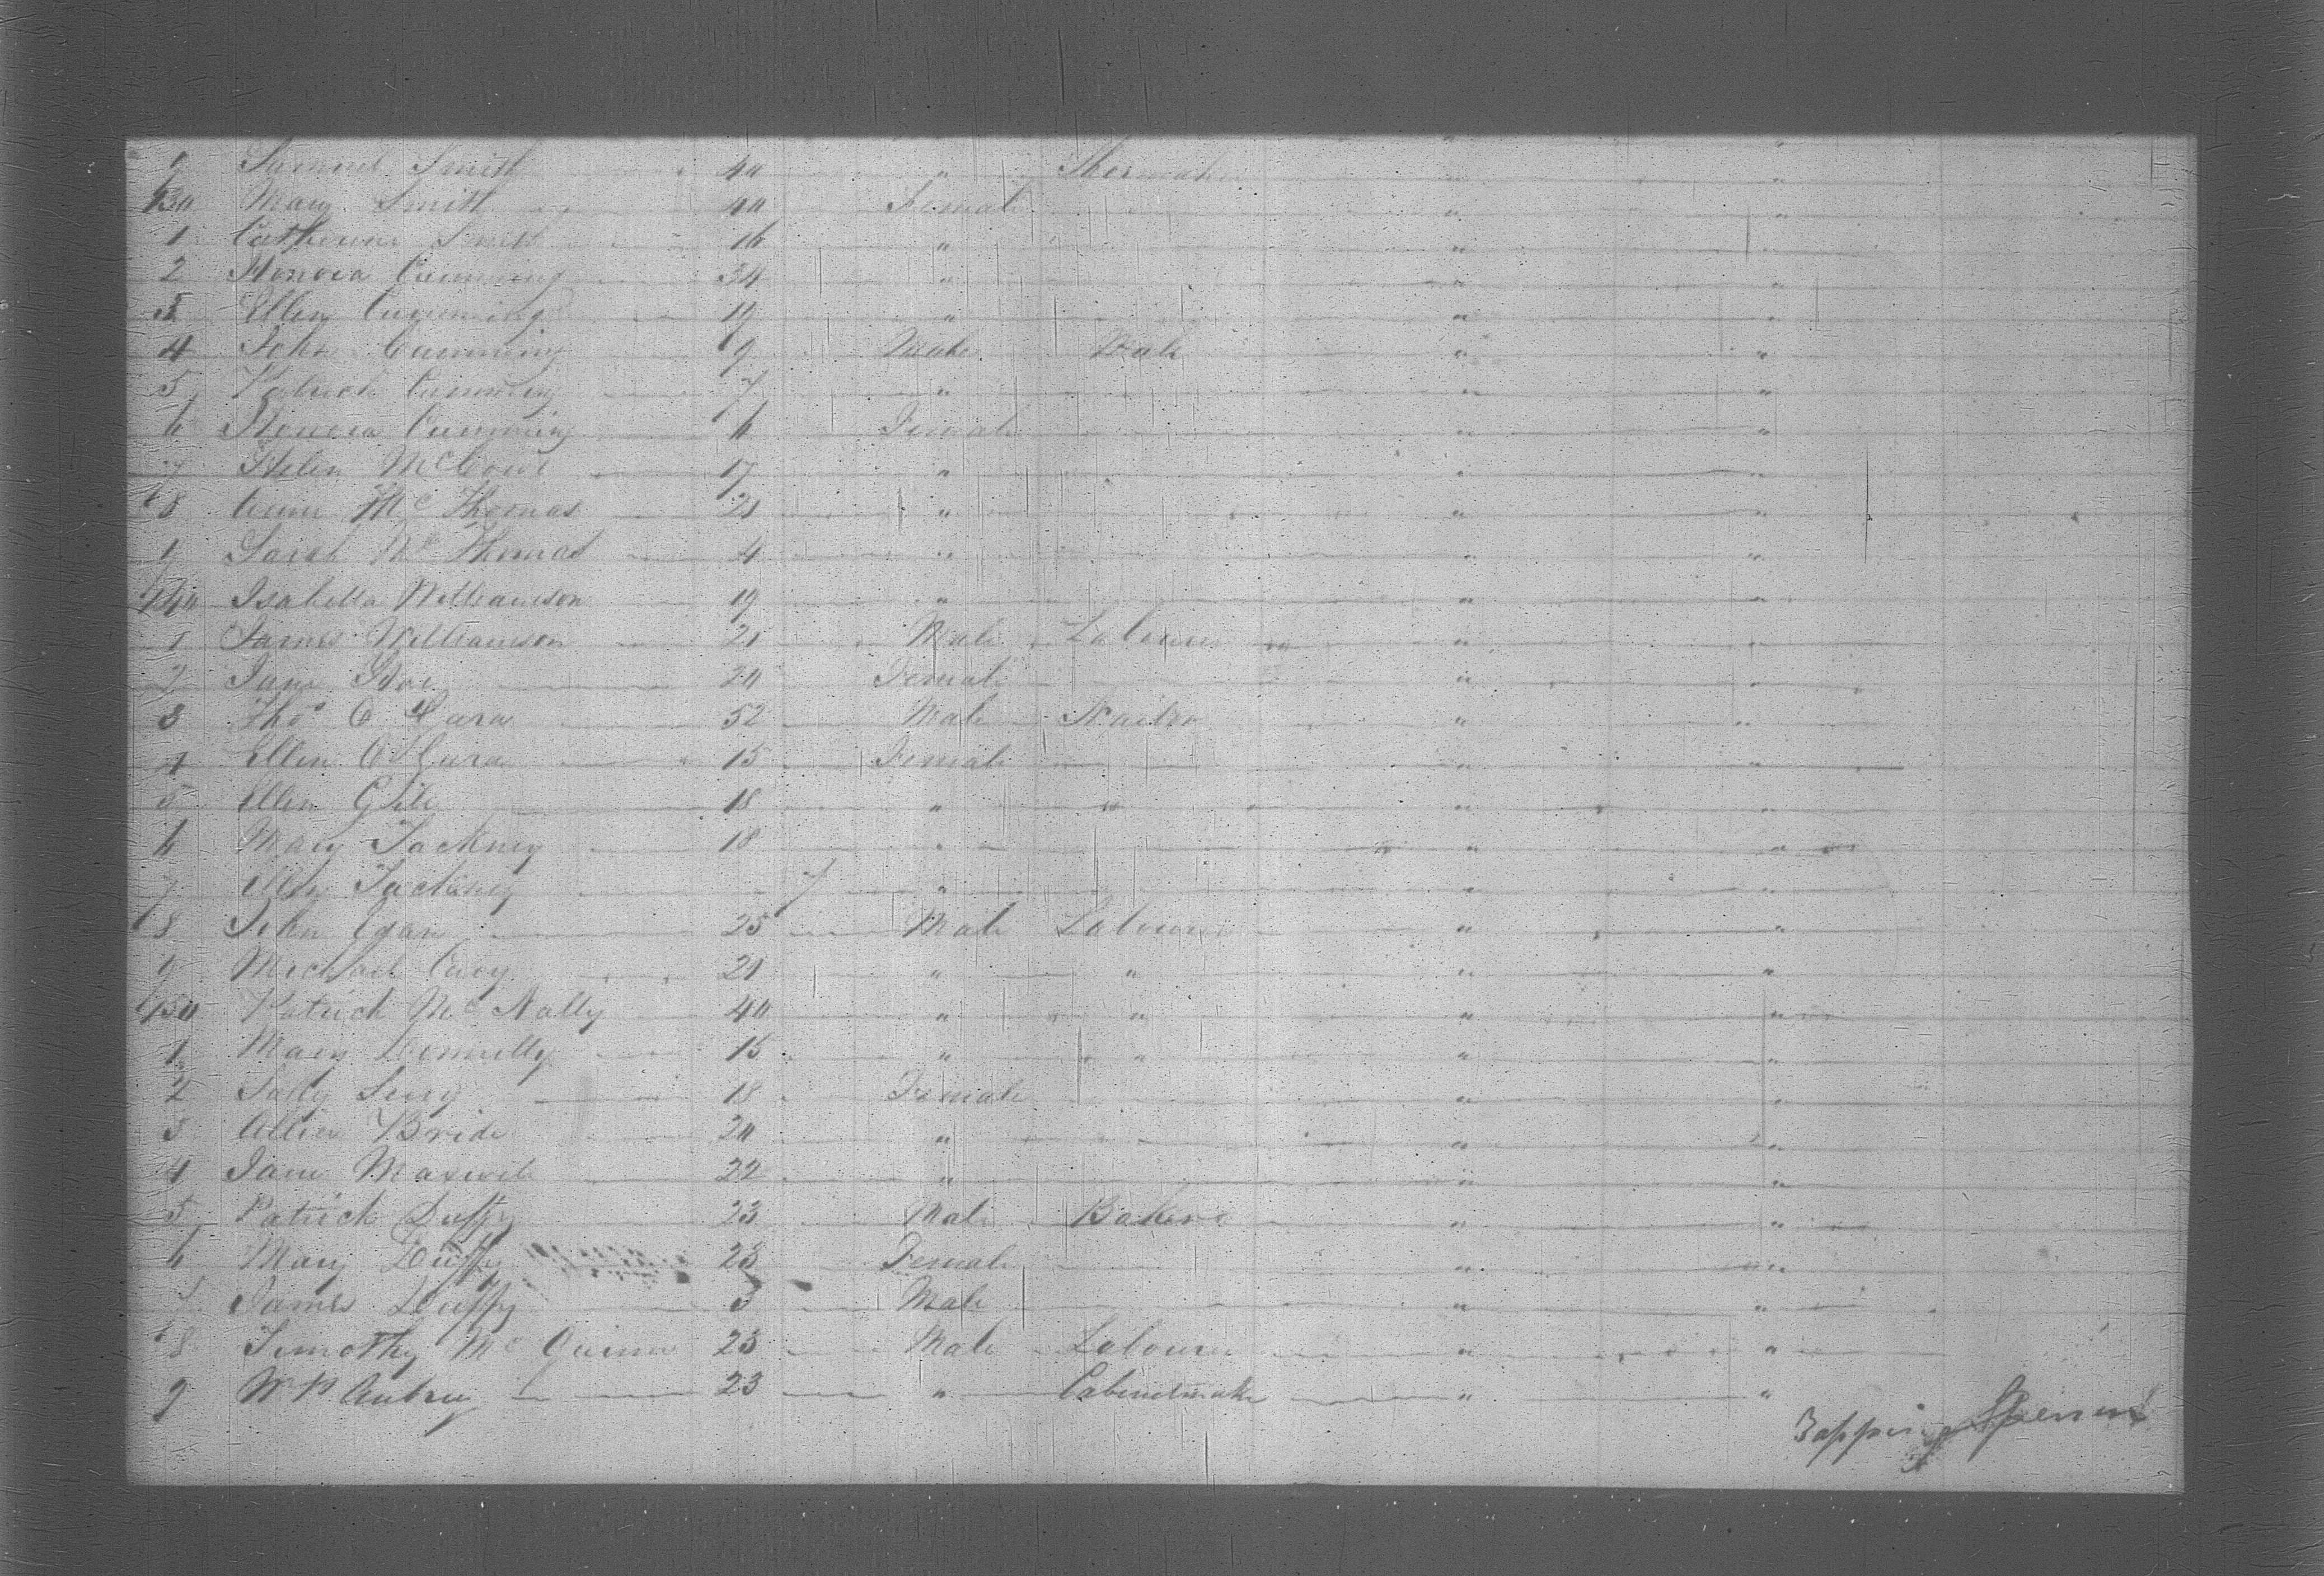 9 Samuel Smith 40 " Shoemaker " "
130 Mary Smith 40 Female " "
1 Catherine Smith 16 " " "
2 Honora Cumming 34 " " "
3 Ellen Cumming 19 " " "
4 John Cumming 9 Male Male " "
5 Patrick Cumming 7 " " "
6 Honora Cumming 6 Female " "
7 Helen 17 " " "
8 Mc Thomas 21 " " "
9 Sarah Mc Thomas 4 " " "
140 Isabella Williamson 19 " " "
1 James Williamson 21 Male Labourer " "
2 Jane 20 Female " "
3 Thos O 52 Male " "
4 Ellen 15 Female " "
5 Ellen 18 " " " "
6 Mary Tackney 18 " " "
7 Tackney 7 " " "
8 John Egan 25 Male Labourer " "
9 Michael 21 " " " "
150 Patrick Mc Nally 40 " " " "
1 Mary Donnelly 15 " " " "
2 18 Female " "
3 Bride 20 " " "
4 Jane Maxwell 22 " " "
5 Patrick Duffy 23 Male Baker " "
6 Mary Duffy 23 Female " "
7 James Duffy 3 Male " "
8 Timothy Mc Quinn 25 Male Labourer " "
9 Wm Aubrey 23 " Cabinetmaker " "